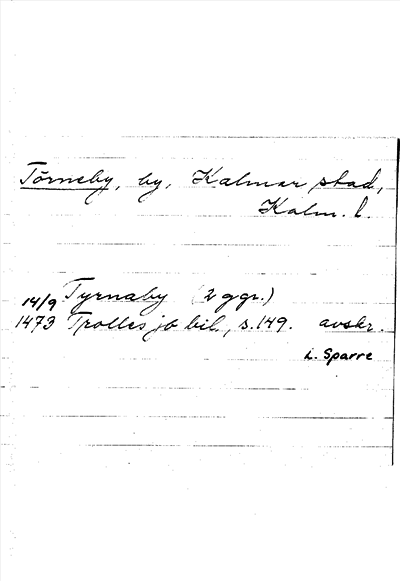 Törneby, by, Kalmar stad,
Kalm. l.
14/9 Tyrnaby (2 ggr.)
1473 Trolles jb bil., s. 149. avskr.
L. Sparre